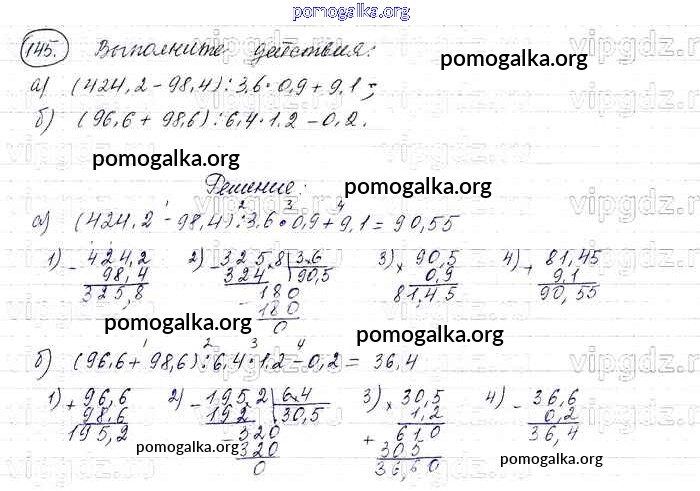 pomogalka.org
145. Выполните действия:
а) (424,2 - 98,4) : 3,6 · 0,9 + 9,1;
pomogalka.org
б) (96,6 + 98,6) : 6,4 · 1,2 - 0,2.
vipgdz.ru
pomogalka.org
Решение:
pomogalka.org
1 2 3 4
а) (424,2 - 98,4) : 3,6 · 0,9 + 9,1 = 90,55
1) - 424,2 2) - 325,8 | 3,6 3) × 90,5 4) + 81,45
98,4 324 90,5 0,9 9,1
325,8 180 81,45 90,55
180
0
pomogalka.org
pomogalka.org
1 2 3 4
б) (96,6 + 98,6) : 6,4 · 1,2 - 0,2 = 36,4
1) + 96,6 2) - 195,2 | 6,4 3) × 30,5 4) - 36,6
98,6 192 30,5 1,2 0,2
195,2 - 320 + 610 36,4
320 305
0 36,60
pomogalka.org
pomogalka.org